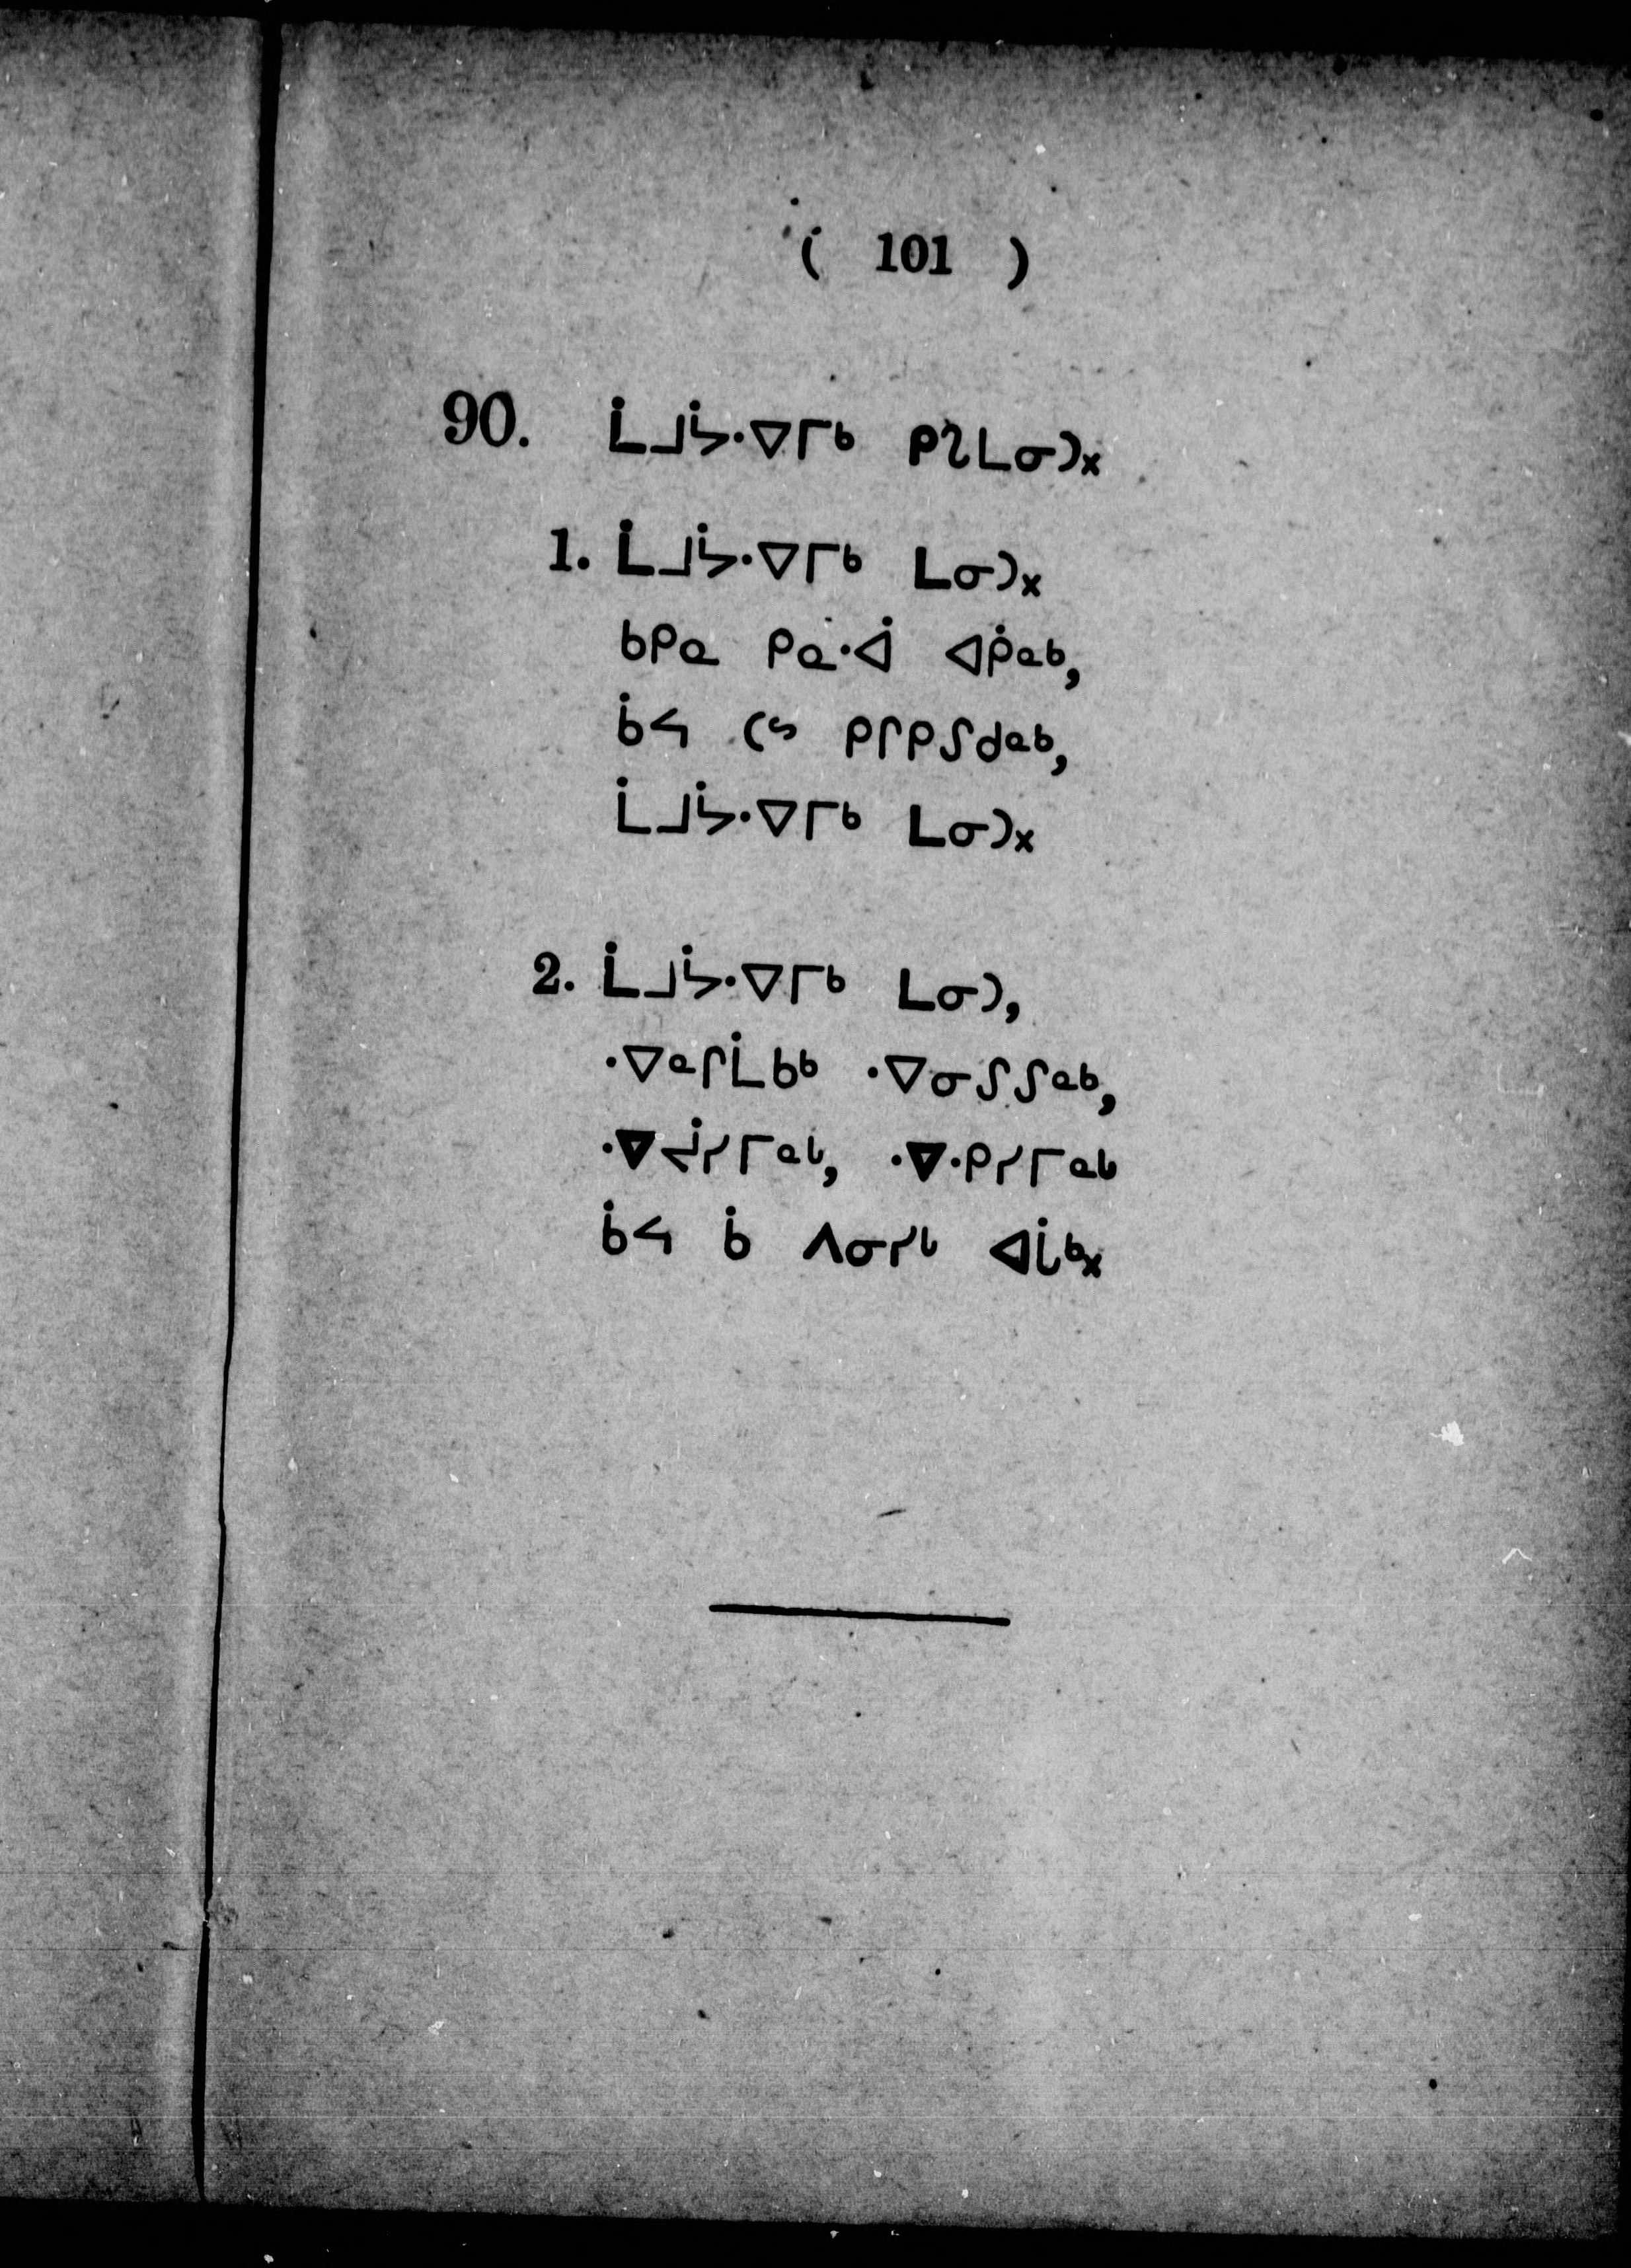 ( 101 )
90. ᒫᒧᔮᐧᐁᒥᒃ ᑭᔐᒪᓂᑐ᙮
1. ᒫᒧᔮᐧᐁᒥᒃ ᒪᓂᑐ᙮
ᑲᑭᓇ ᑭᓇᐧᐋ ᐊᑮᓇᒃ,
ᑳᔕ ᑕᔥ ᑭᒋᑭᔑᑯᓇᒃ,
ᒫᒧᔮᐧᐁᒥᒃ ᒪᓂᑐ᙮
2. ᒫᒧᔮᐧᐁᒥᒃ ᒪᓂᑐ,
ᐧᐁᓇᒋᒫᑲᒃ ᐧᐁᓂᔑᔑᓇᒃ,
ᐧᐁᔫᓯᒥᓇᒡ, ᐧᐁᐧᑭᓯᒥᓇᒡ
ᑳᔕ ᑳ ᐱᓂᓯᒡ ᐊᒑᒃ᙮